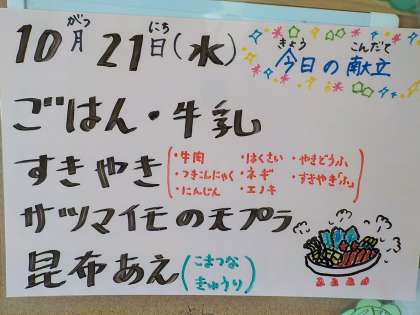 がつ にち
10月21日(水)
きょう こんだて
今日の献立
ごはん・牛乳
すきやき
・牛肉 ・はくさい ・やきどうふ
・つきこんにゃく ・ネギ ・すきやき「ふ」
・にんじん ・エノキ
サツマイモの天プラ
昆布あえ(こまつな
きゅうり)